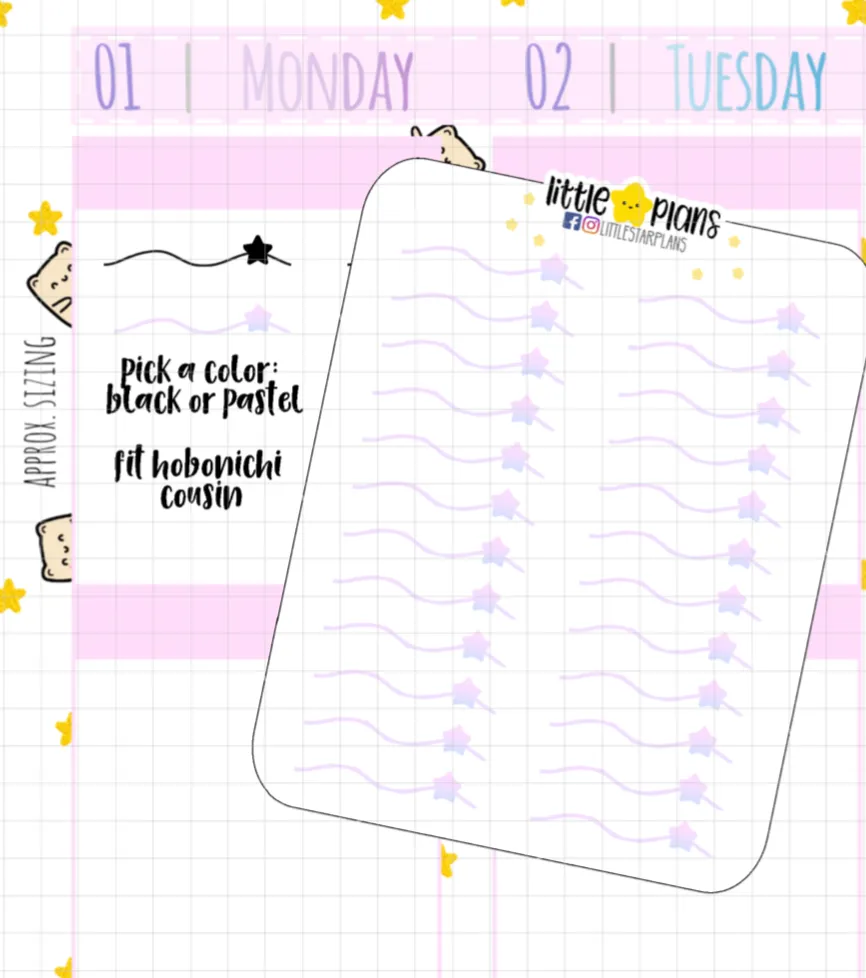 01 | Monday
02 | Tuesday
little plans
LITTLESTARPLANS
APPROX. SIZING
pick a color:
black or pastel
fit hobonichi
cousin